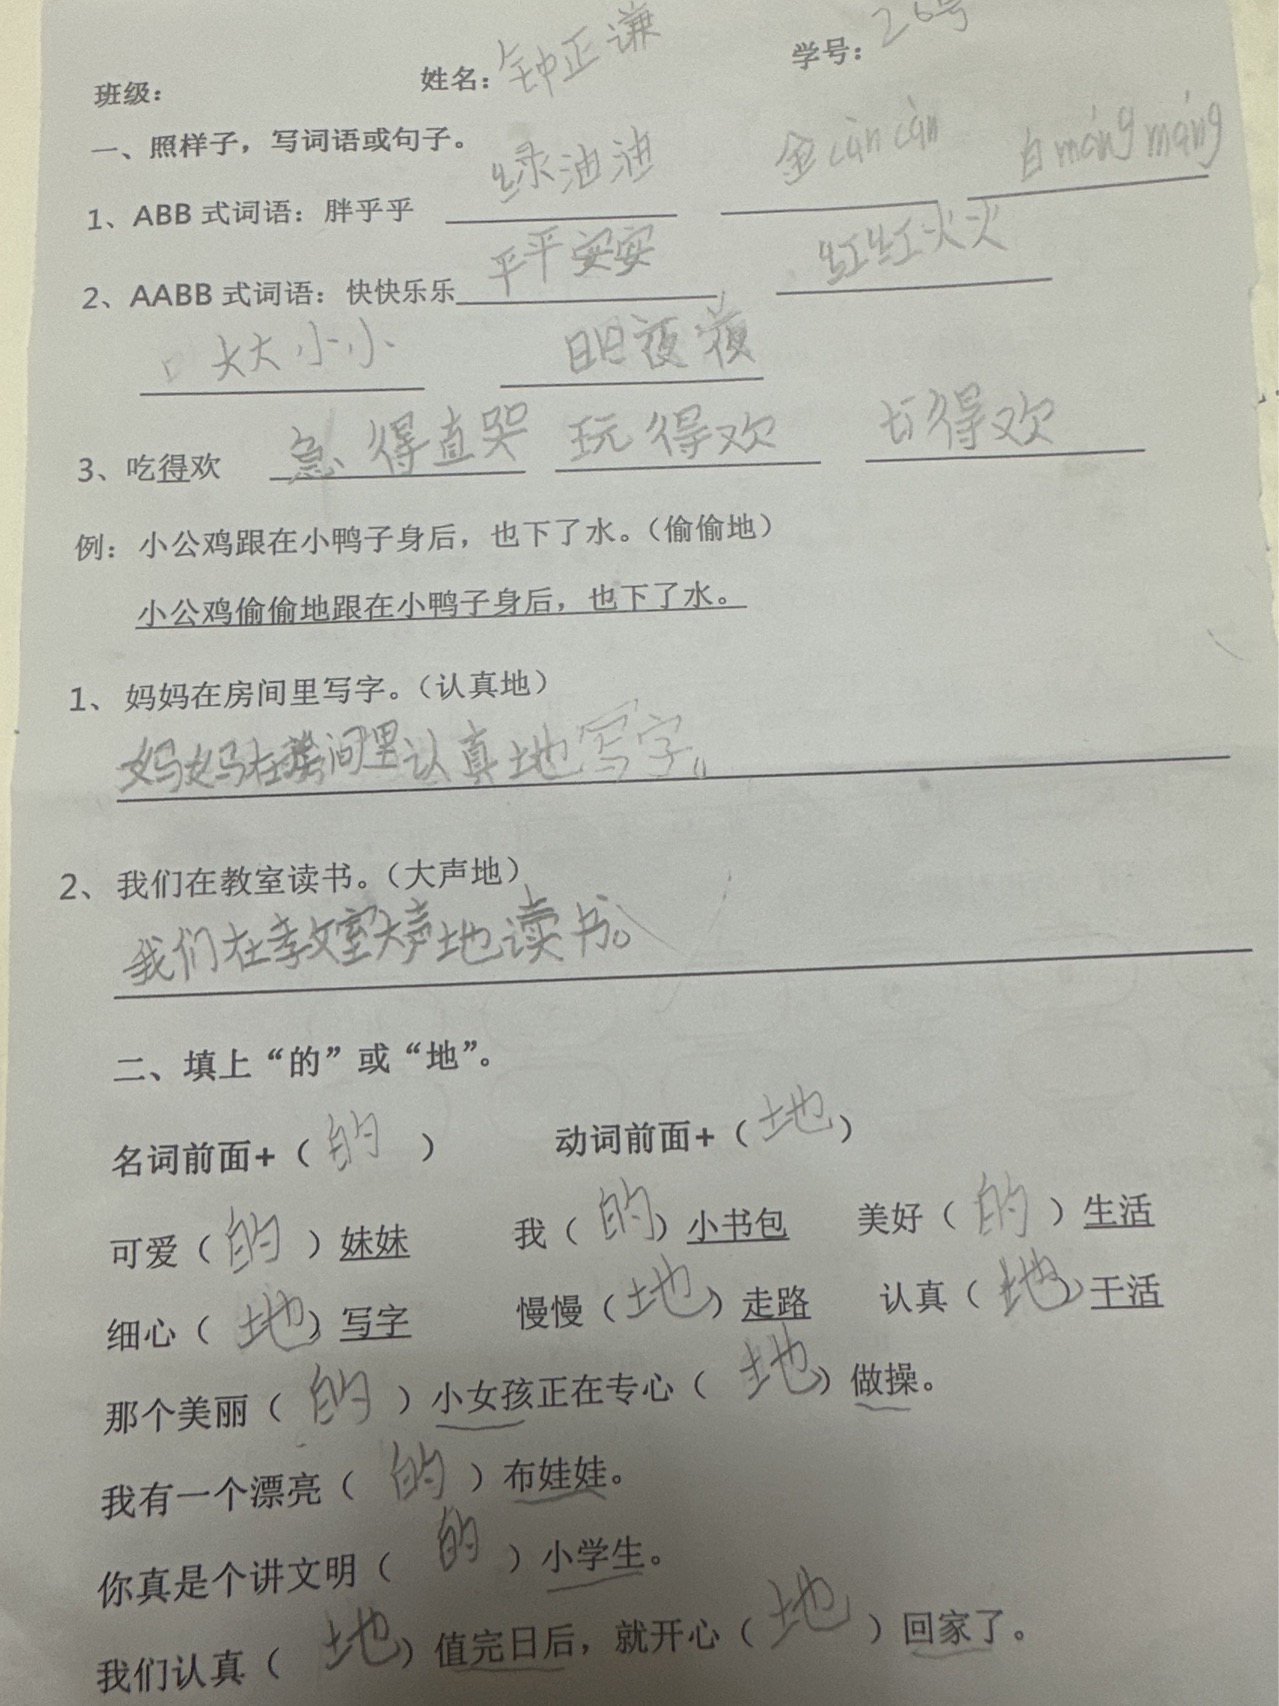 班级： 姓名：钟正谦 学号：26号
一、照样子，写词语或句子。
1、ABB 式词语：胖乎乎 绿油油 金càn càn 白máng máng
2、AABB 式词语：快快乐乐 平平安安 红红火火
大大小小 日日夜夜
3、吃得欢 急得直哭 玩得欢 得欢
例：小公鸡跟在小鸭子身后，也下了水。（偷偷地）
小公鸡偷偷地跟在小鸭子身后，也下了水。
1、妈妈在房间里写字。（认真地）
妈妈在房间里认真地写字。
2、我们在教室读书。（大声地）
我们在教室大声地读书。
二、填上“的”或“地”。
名词前面+（的） 动词前面+（地）
可爱（的）妹妹 我（的）小书包 美好（的）生活
细心（地）写字 慢慢（地）走路 认真（地）干活
那个美丽（的）小女孩正在专心（地）做操。
我有一个漂亮（的）布娃娃。
你真是个讲文明（的）小学生。
我们认真（地）值完日后，就开心（地）回家了。